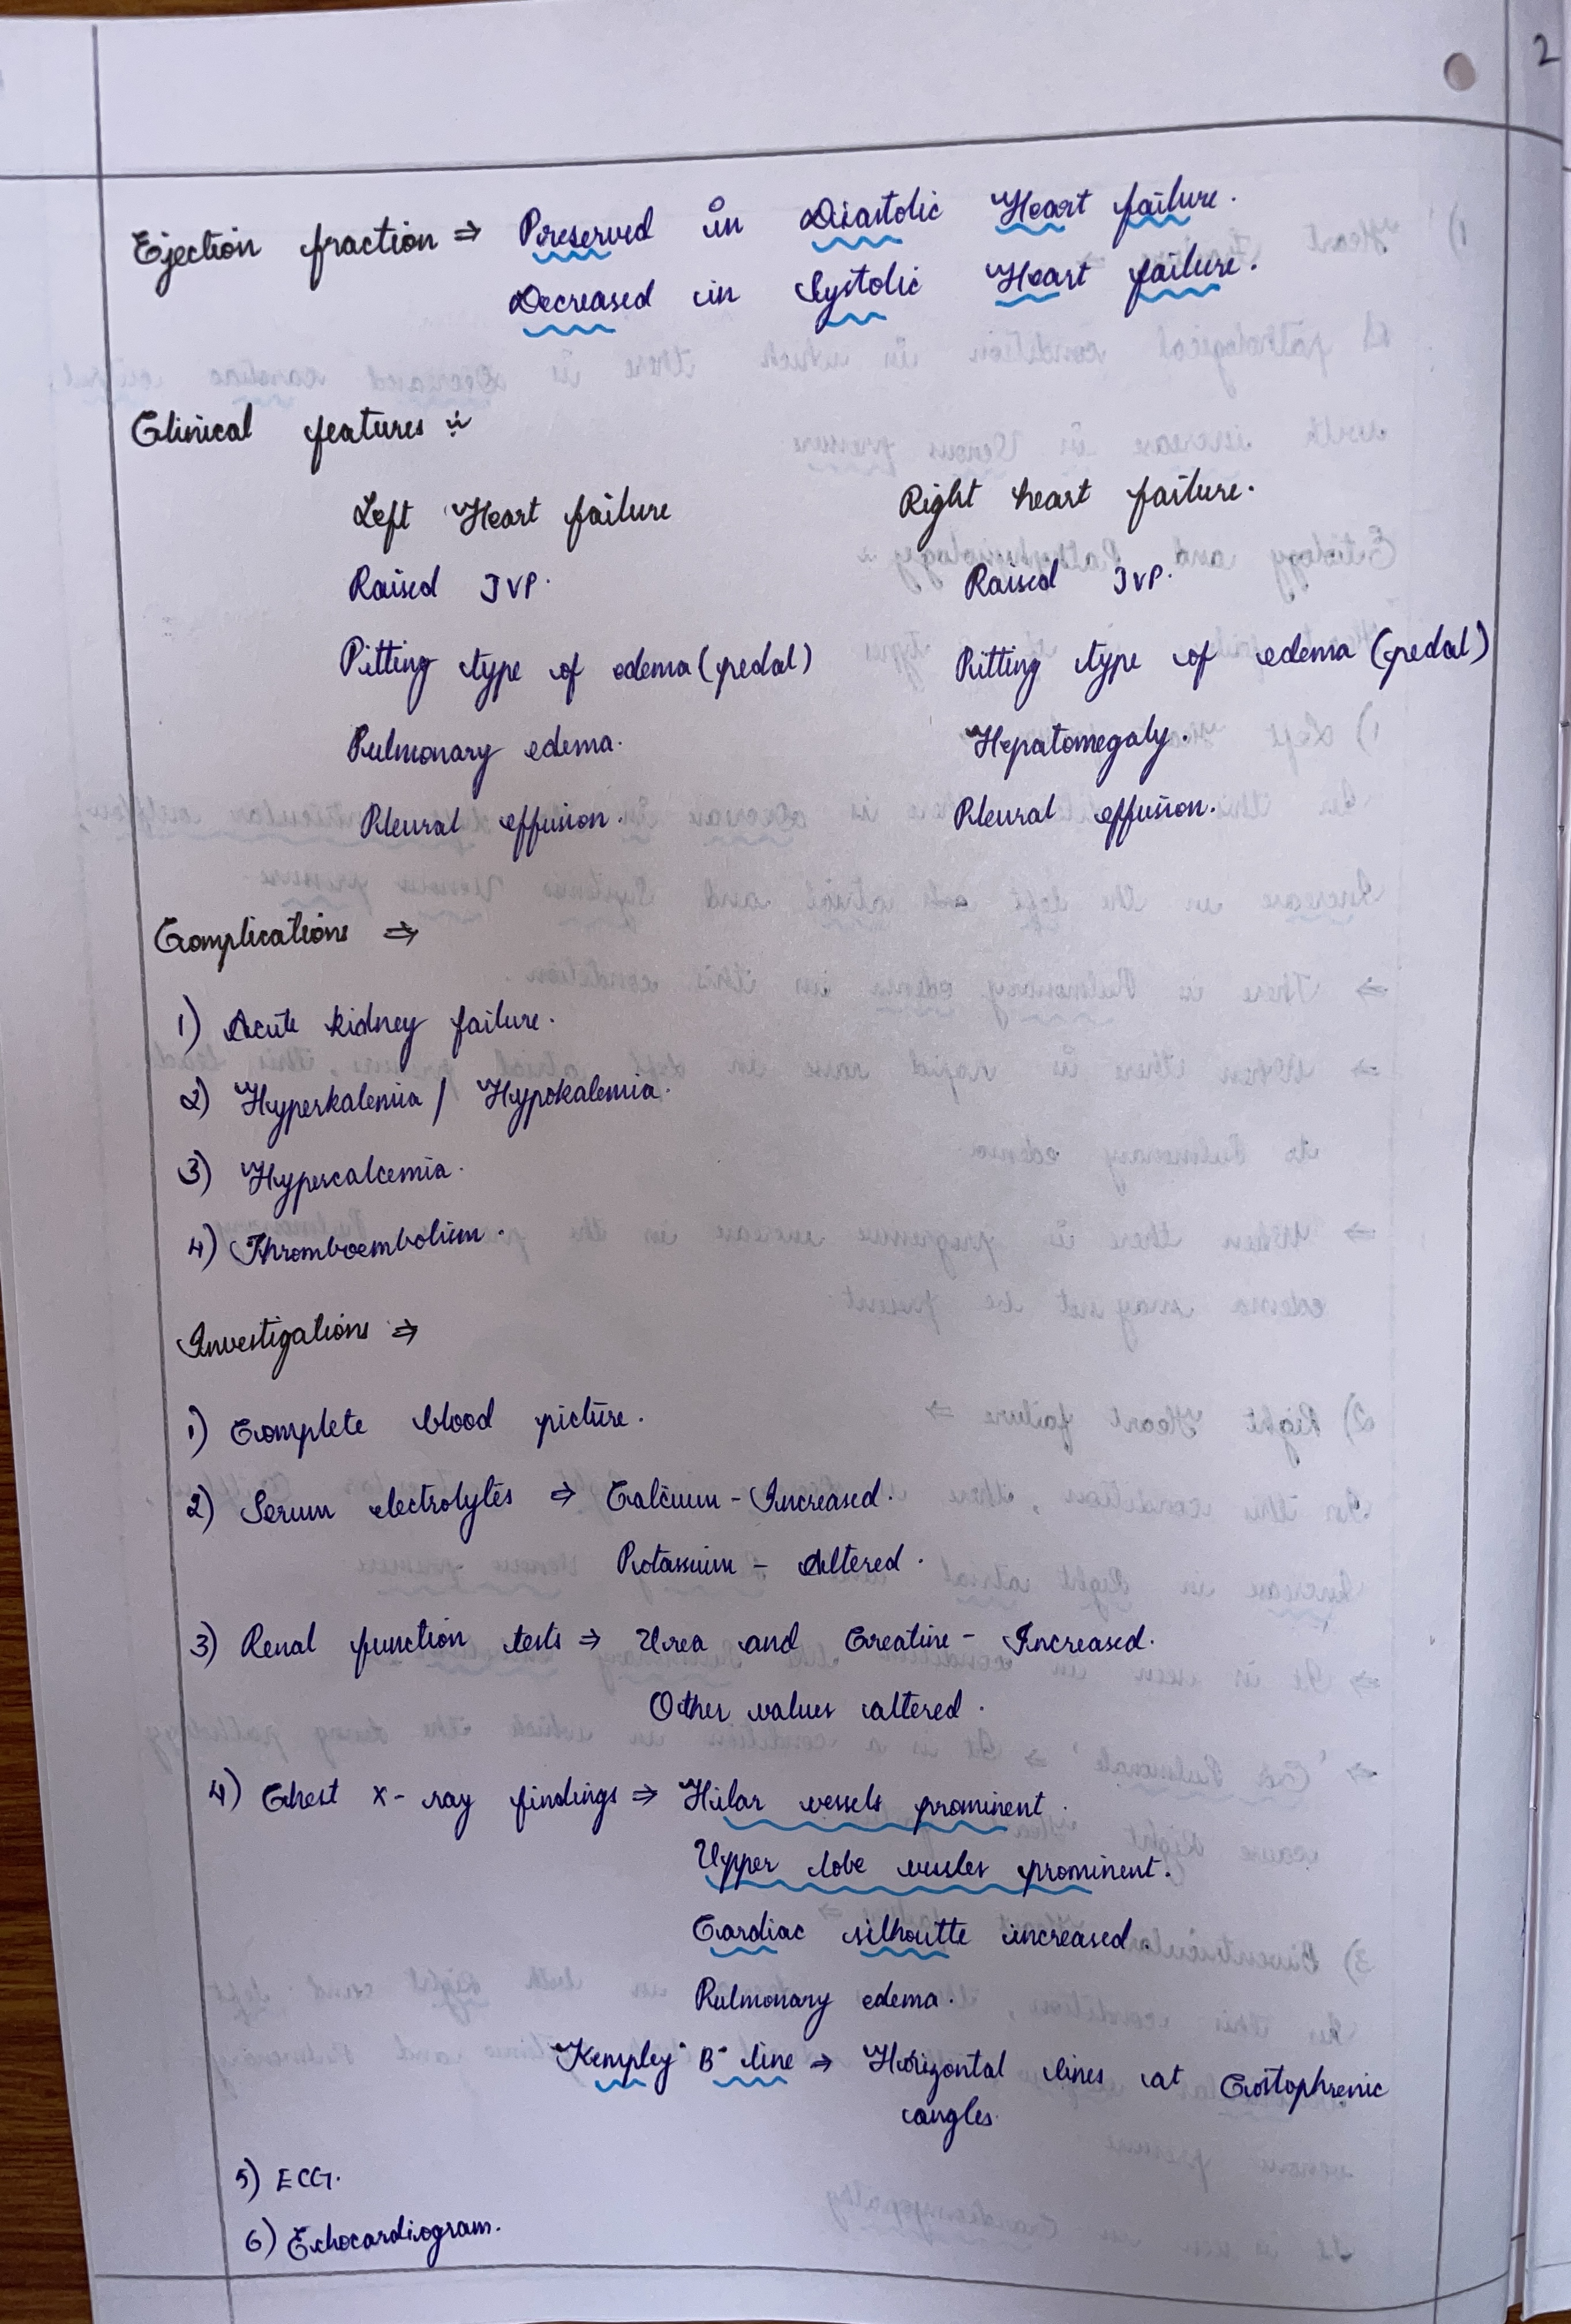 2
Ejection fraction ⇒ Preserved in Diastolic Heart failure.
Decreased in Systolic Heart failure.
Clinical features ÷
Left Heart failure Right heart failure.
Raised JVP. Raised JVP.
Pitting type of edema (pedal) Pitting type of edema (pedal)
Pulmonary edema. Hepatomegaly.
Pleural effusion. Pleural effusion.
Complications ⇒
1) Acute kidney failure.
2) Hyperkalemia / Hypokalemia.
3) Hypercalcemia.
4) Thromboembolism.
Investigations ⇒
1) Complete blood picture.
2) Serum electrolytes ⇒ Calcium - Increased.
Potassium - Altered.
3) Renal function tests ⇒ Urea and Creatine - Increased.
Other values altered.
4) Chest X-ray findings ⇒ Hilar vessels prominent.
Upper lobe vessles prominent.
Cardiac silhoutte increased.
Pulmonary edema.
"Kempley" B" line ⇒ Horizontal lines at Costophrenic
angles.
5) ECG.
6) Echocardiogram.